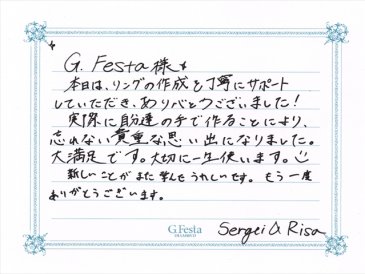 G. Festa様
本日は、リングの作成を丁寧にサポート
していただき、ありがとうございました!
実際に自分達の手で作ることにより、
忘れない貴重な思い出になりました。
大満足です。大切に一生使います。
新しいことがまた学んでうれしいです。もう一度
ありがとうございます。
G.Festa
Sergei & Risa